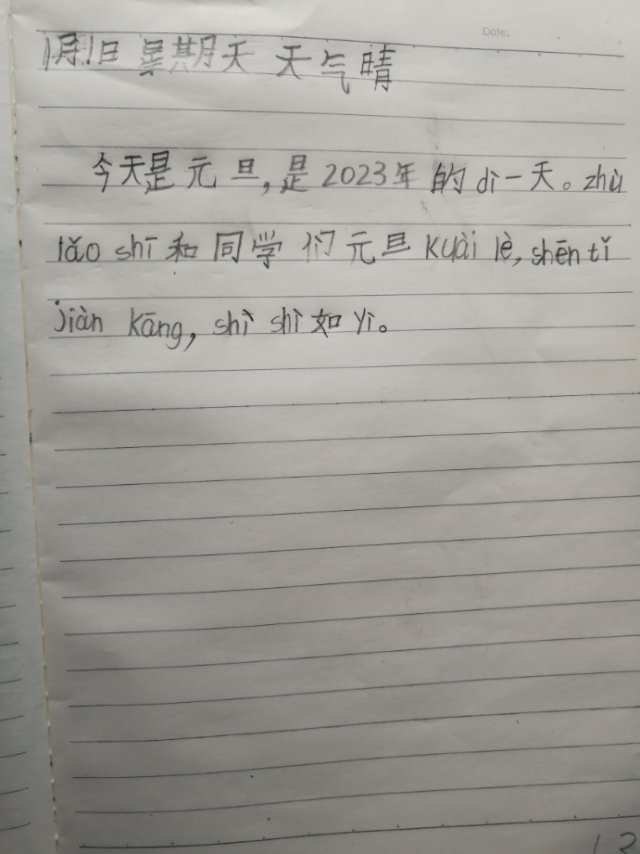 Date.
1月1日 星期天 天气晴
今天是元旦,是2023年的dì一天。zhù
lǎo shī和同学们元旦kuài lè,shēn tǐ
jiàn kāng,shì shì如yì。